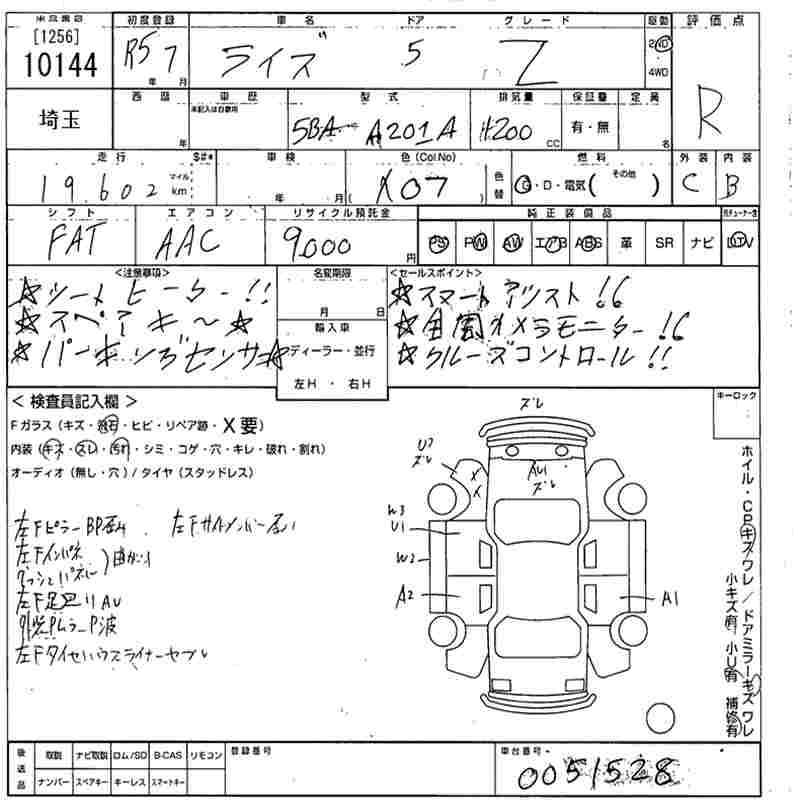 [1256]
10144
埼玉
初度登録
R5 7
年 月
車名
ライズ
ドア
5
グレード
Z
駆動
2ND
4WD
評価点
R
西暦
年
車歴
未記入は自家用
型式
5BA A201A
排気量
1200
CC
保証書
有・無
定員
名
走行
19.602
マイル
km
$#*
車検
年 月
色(Col No)
( X07 )
色替
燃料
G・D・電気( その他 )
外装
C
内装
B
シフト
FAT
エアコン
AAC
リサイクル預託金
9,000
円
純正装備品
PS PW AW エアB ABS 革 SR ナビ TV
<注意事項>
☆シートヒーター!!
☆スペアキー☆
☆パーキングセンサー☆
名変期限
月 日
輸入車
ディーラー・並行
左H ・ 右H
<セールスポイント>
☆スマートアシスト!!
☆全周カメラモニター!!
☆クルーズコントロール!!
<検査員記入欄>
Fガラス(キズ・飛石・ヒビ・リペア跡・X要)
内装(キズ・スレ・汚れ・シミ・コゲ・穴・キレ・破れ・割れ)
オーディオ(無し・穴)/タイヤ(スタッドレス)
左Fピラー
左Fインパネ
曲がり
左F足廻り
キーロック
ズレ
AU1
ズレ
U2
ズレ
X
X
W3
U1
W2
A2
A1
ホイル・CPキズワレ/ドアミラーキズワレ
小キズ有 小U有 補修有
後送品
取説 ナビ取説 ロム/SD B-CAS リモコン
ナンバー スペアキー キーレス スマートキー
登録番号
車台番号
0051528